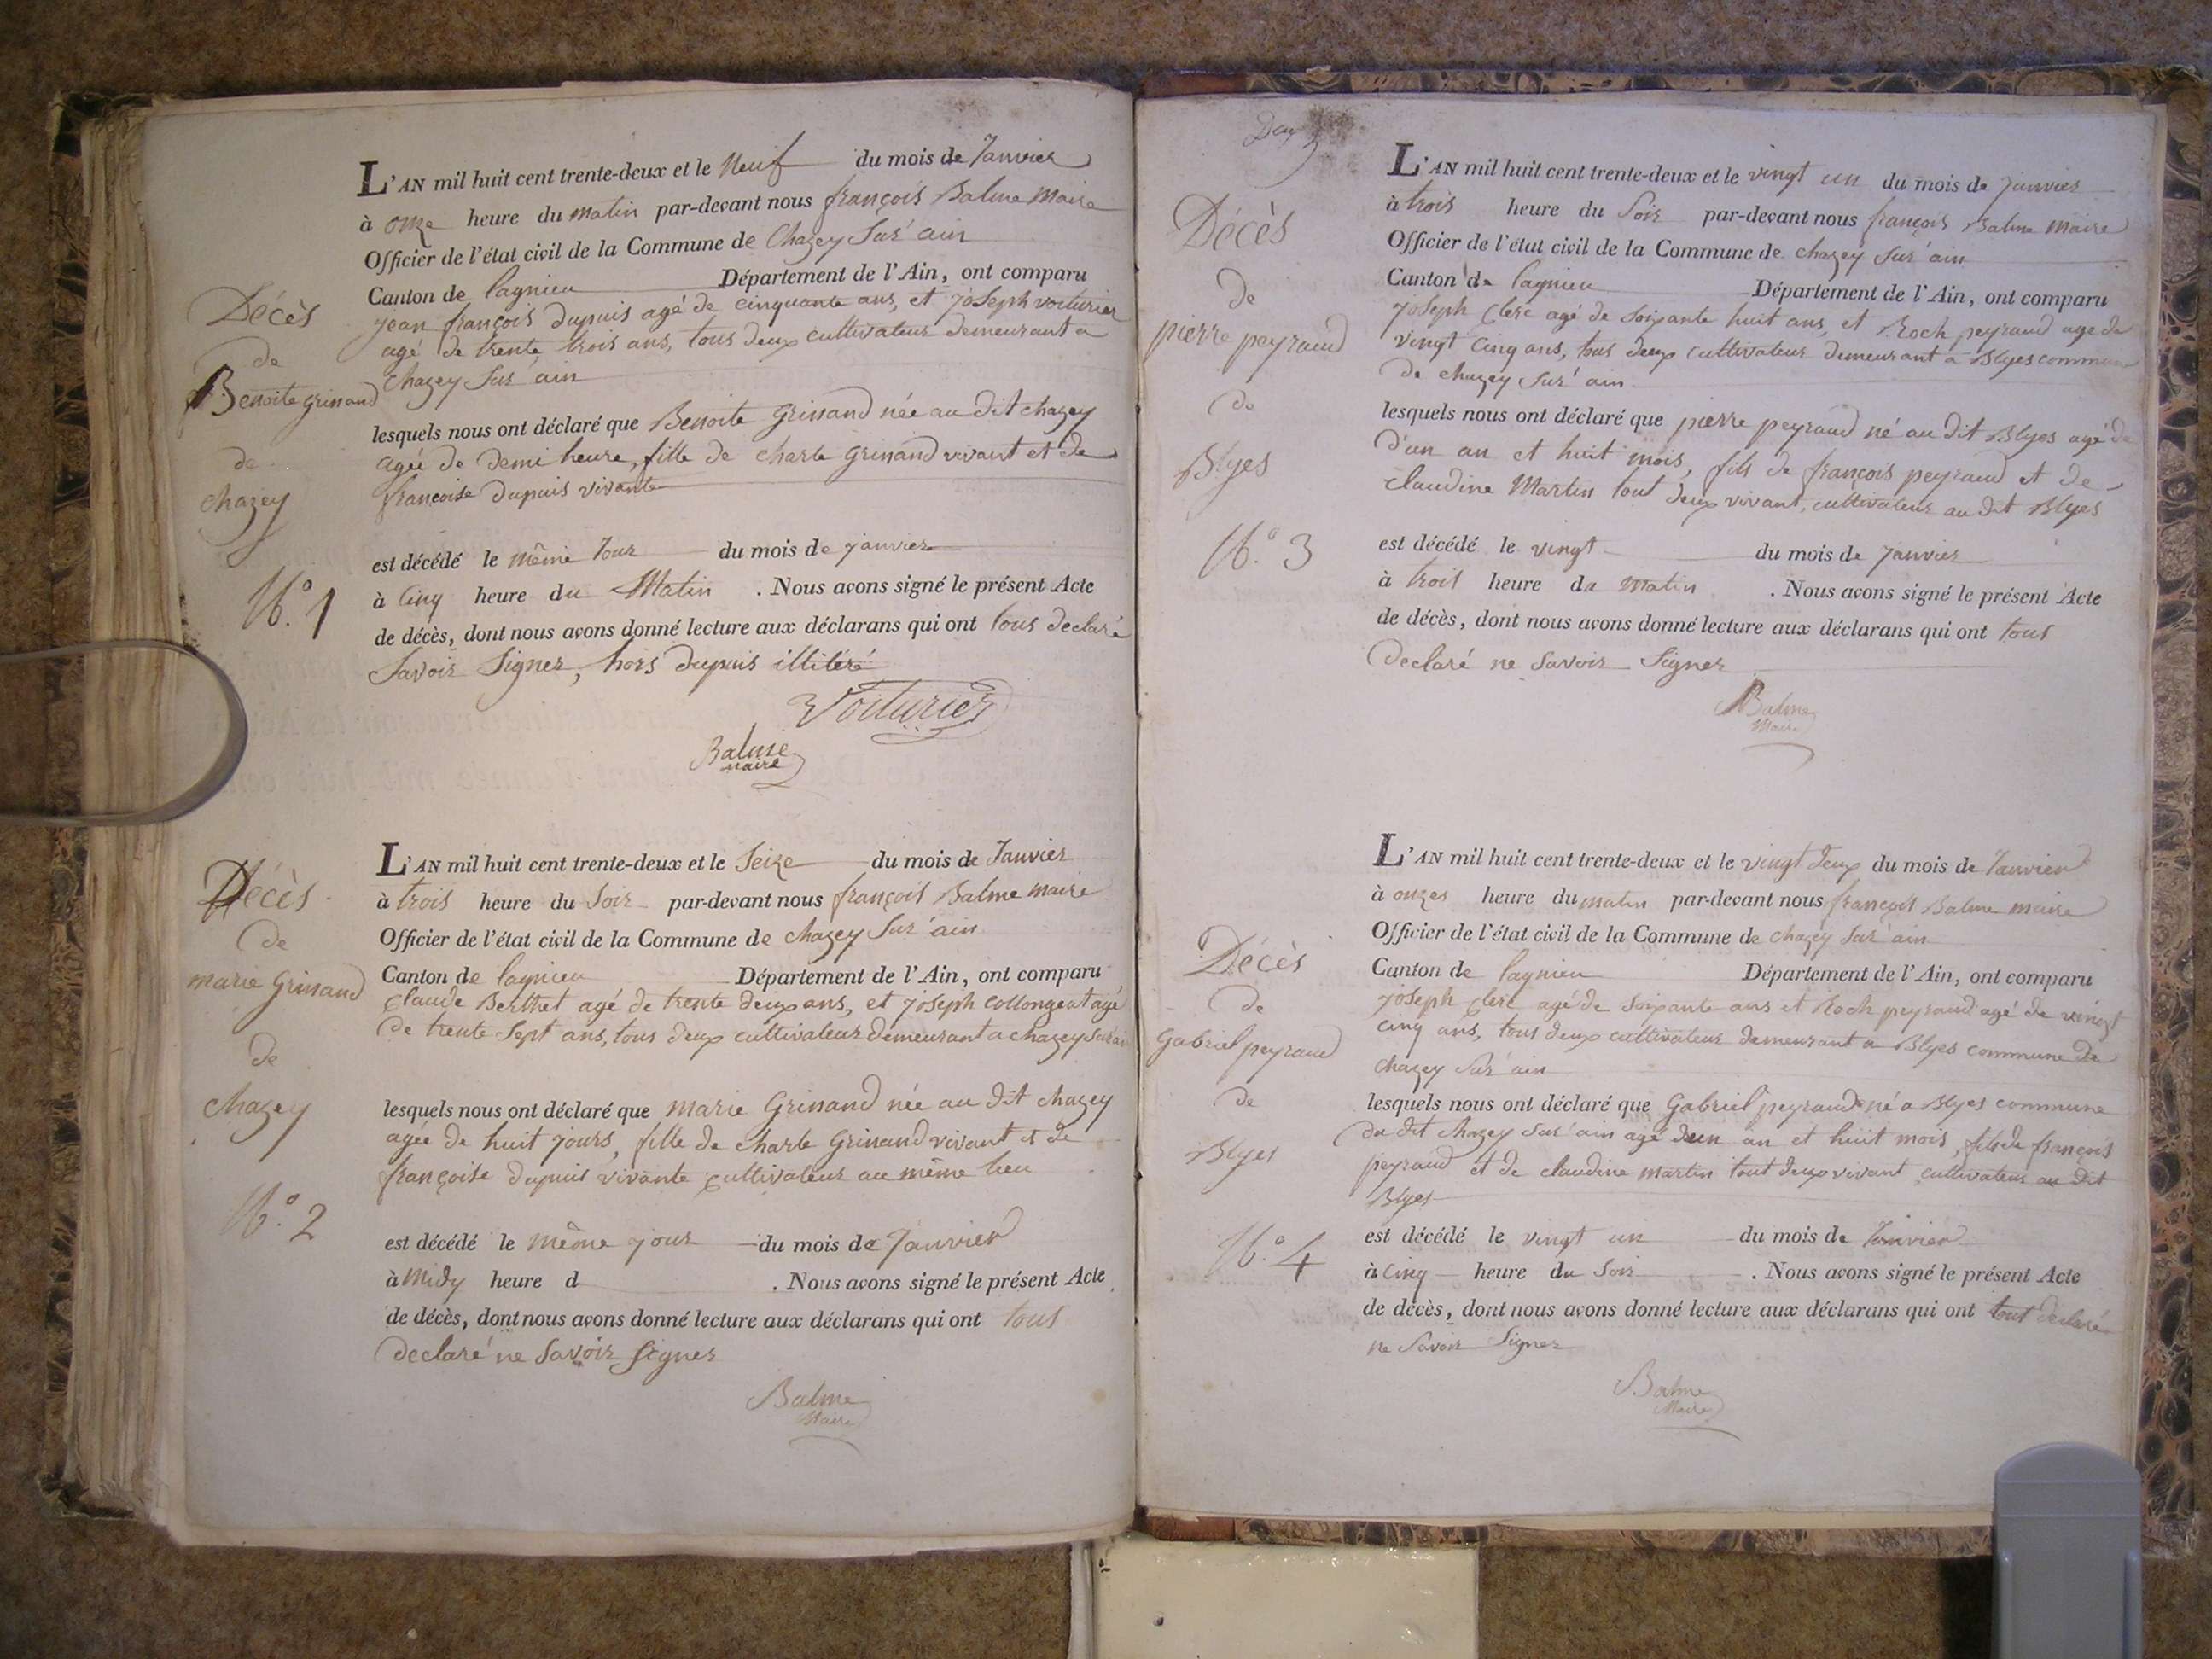 Décès
de
Benoite Grinand
de
chazey
N.º 1
L'AN mil huit cent trente-deux et le Neuf du mois de Janvier
à onze heure du matin par-devant nous françois Balme Maire
Officier de l'état civil de la Commune de Chazey Sur' ain
Canton de lagnieu Département de l'Ain, ont comparu
jean françois dupuis agé de cinquante ans, et joseph voiturier
agé de trente trois ans, tous deux cultivateur demeurant a
chazey Sur' ain
lesquels nous ont déclaré que Benoite Grinand née au dit chazey
agée de demi heure, fille de charle Grinand vivant et de
francoise dupuis vivante
est décédé le même Jour du mois de janvier
à Cinq heure du Matin . Nous avons signé le présent Acte
de décès, dont nous avons donné lecture aux déclarans qui ont tous declaré
Savoir Signer, hors dupuis illitéré
Voiturier
Balme
maire
Décès
de
marie Grinand
de
chazey
N.º 2
L'AN mil huit cent trente-deux et le Seize du mois de Janvier
à trois heure du Soir par-devant nous françois Balme maire
Officier de l'état civil de la Commune de chazey Sur' ain
Canton de lagnieu Département de l'Ain, ont comparu
Claude Berthet agé de trente deux ans, et joseph collongeat agé
de trente Sept ans, tous deux cultivateur demeurant a chazey Sur ain
lesquels nous ont déclaré que marie Grinand née au dit chazey
agée de huit jours, fille de charle Grinand vivant et de
françoise dupuis vivante cultivateur au même lieu
est décédé le même jour du mois de Janvier
à Midy heure d . Nous avons signé le présent Acte
de décès, dont nous avons donné lecture aux déclarans qui ont tous
declaré ne Savoir Signer
Balme
Maire
Deux
Décès
de
pierre peyraud
de
Blyes
N.º 3
L'AN mil huit cent trente-deux et le vingt un du mois de janvier
à trois heure du Soir par-devant nous françois Balme maire
Officier de l'état civil de la Commune de chazey Sur' ain
Canton de lagnieu Département de l'Ain, ont comparu
joseph Clerc agé de Soixante huit ans, et Roch peyraud age de
vingt Cinq ans, tous deux cultivateur demeurant a Blyes commune
de chazey Sur' ain
lesquels nous ont déclaré que pierre peyraud né au dit Blyes agé de
d'un an et huit mois, fils de françois peyraud et de
claudine Martin tout deux vivant, cultivateur au dit Blyes
est décédé le vingt du mois de janvier
à trois heure du matin . Nous avons signé le présent Acte
de décès, dont nous avons donné lecture aux déclarans qui ont tous
declaré ne Savoir Signer
Balme
Maire
Décès
de
Gabriel peyraud
de
Blyes
N.º 4
L'AN mil huit cent trente-deux et le vingt deux du mois de Janvier
à onzes heure du matin par-devant nous françois Balme maire
Officier de l'état civil de la Commune de chazey Sur ain
Canton de lagnieu Département de l'Ain, ont comparu
joseph Clerc agé de Soixante ans et Roch peyraud agé de vingt
cinq ans, tous deux cultivateur demeurant a Blyes commune de
chazey Sur' ain
lesquels nous ont déclaré que Gabriel peyraud né a Blyes commune
du dit chazey Sur' ain agé d'un an et huit mois, fils de françois
peyraud et de claudine martin tout deux vivant cultivateur au dit
Blyes
est décédé le vingt un du mois de Janvier
à cinq heure du Soir . Nous avons signé le présent Acte
de décès, dont nous avons donné lecture aux déclarans qui ont tout declaré
ne Savoir Signer
Balme
Maire